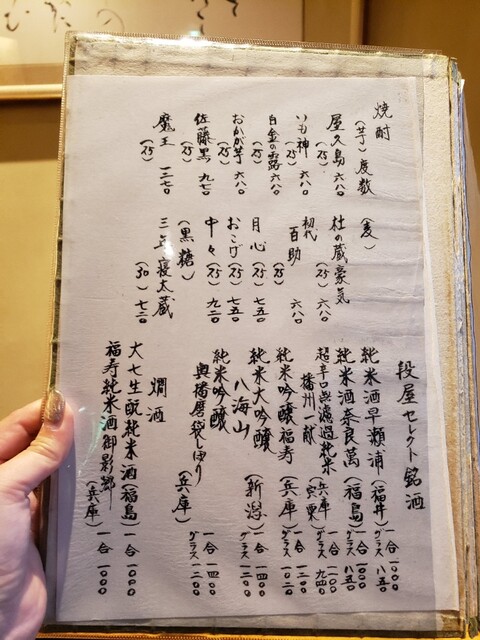 焼酎
(芋) 度数
屋久島 (25) 六八〇
いも神 (25) 六八〇
白金の露 (25) 六八〇
おかが芋 (25) 六八〇
佐藤黒 (25) 九七〇
魔王 (25) 一三七〇
(麦)
杜の蔵豪気 (25) 六八〇
初代百助 (25) 六八〇
月心 (25) 七五〇
おこげ (25) 七五〇
中々 (25) 九二〇
(黒糖)
三年寝太蔵 (30) 七二〇
段屋セレクト銘酒
純米酒早瀬浦 (福井) 一合一〇〇〇 グラス八五〇
純米酒奈良萬 (福島) 一合一〇〇〇 グラス八五〇
超辛口無濾過純米
播州一献 (兵庫宍粟) 一合一一〇〇 グラス九四〇
純米吟醸福寿 (兵庫) 一合一二〇〇 グラス一〇二〇
純米大吟醸
八海山 (新潟) 一合一四〇〇 グラス一二〇〇
純米吟醸
奥播磨袋しぼり (兵庫) 一合一四〇〇 グラス一二〇〇
燗酒
大七生酛純米酒 (福島) 一合一〇〇〇
福寿純米酒御影郷 (兵庫) 一合一〇〇〇